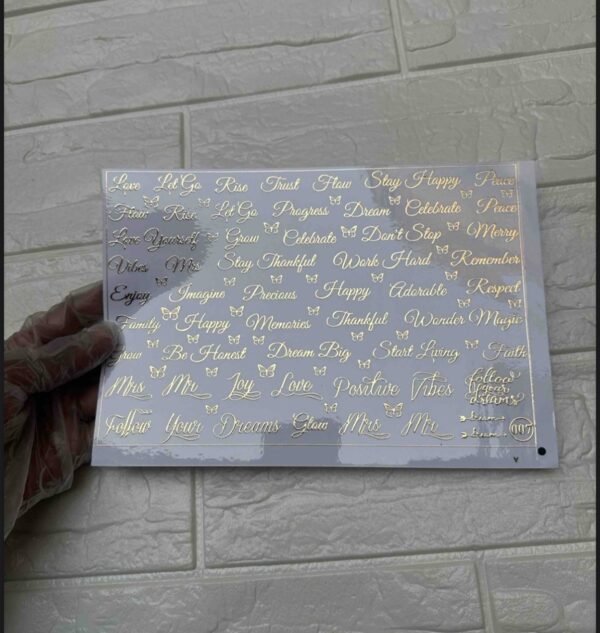 Love Let Go Rise Trust Flow Stay Happy Peace
Flow Rise Let Go Progress Dream Celebrate Peace
Love Yourself Grow Celebrate Don't Stop Merry
Vibes Mrs Stay Thankful Work Hard Remember
Enjoy Imagine Precious Happy Adorable Respect
Family Happy Memories Thankful Wonder Magic
Grow Be Honest Dream Big Start Living Faith
Mrs Mr Joy Love Positive Vibes
follow
your
dreams
Follow Your Dreams Glow Mrs Mr
007